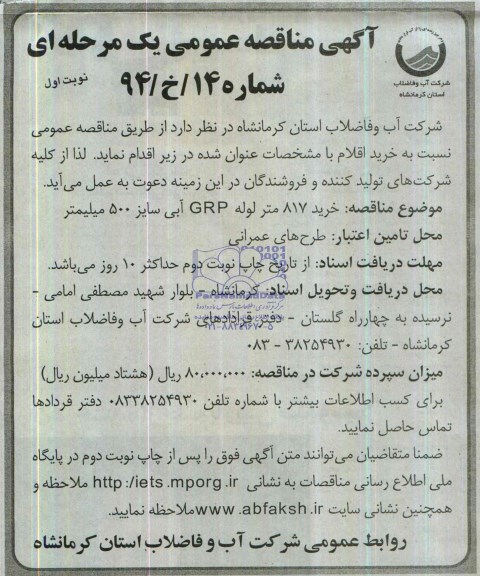 آگهی مناقصه عمومی یک مرحله ای
شماره ۱۴/خ/۹۴
نوبت اول
شرکت آب وفاضلاب
استان کرمانشاه
شرکت آب وفاضلاب استان کرمانشاه در نظر دارد از طریق مناقصه عمومی
نسبت به خرید اقلام با مشخصات عنوان شده در زیر اقدام نماید. لذا از کلیه
شرکت‌های تولید کننده و فروشندگان در این زمینه دعوت به عمل می‌آید.
موضوع مناقصه: خرید ۸۱۷ متر لوله GRP آبی سایز ۵۰۰ میلیمتر
محل تامین اعتبار: طرح‌های عمرانی
مهلت دریافت اسناد: از تاریخ چاپ نوبت دوم حداکثر ۱۰ روز می‌باشد.
محل دریافت وتحویل اسناد: کرمانشاه - بلوار شهید مصطفی امامی -
نرسیده به چهارراه گلستان - دفتر قراردادهای شرکت آب وفاضلاب استان
کرمانشاه - تلفن: ۳۸۲۵۴۹۳۰ - ۰۸۳
میزان سپرده شرکت در مناقصه: ۸۰,۰۰۰,۰۰۰ ریال (هشتاد میلیون ریال)
برای کسب اطلاعات بیشتر با شماره تلفن ۰۸۳۳۸۲۵۴۹۳۰ دفتر قردادها
تماس حاصل نمایید.
ضمنا متقاضیان می‌توانند متن آگهی فوق را پس از چاپ نوبت دوم در پایگاه
ملی اطلاع رسانی مناقصات به نشانی http:/iets.mporg.ir ملاحظه و
همچنین نشانی سایت www.abfaksh.ir ملاحظه نمایید.
روابط عمومی شرکت آب و فاضلاب استان کرمانشاه
ParsNamadData